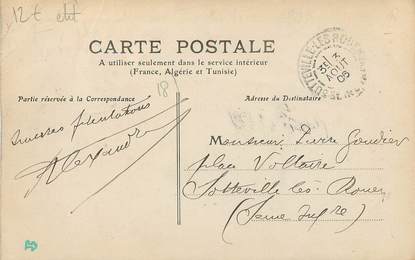 12 €
CARTE POSTALE
A utiliser seulement dans le service intérieur
(France, Algérie et Tunisie)
Partie réservée à la Correspondance
Adresse du Destinataire
18
SOTTEVILLE-LES-ROUEN
AOUT
félicitations
Alexandre
Monsieur
place Voltaire
Sotteville lès Rouen
(Seine Infre)